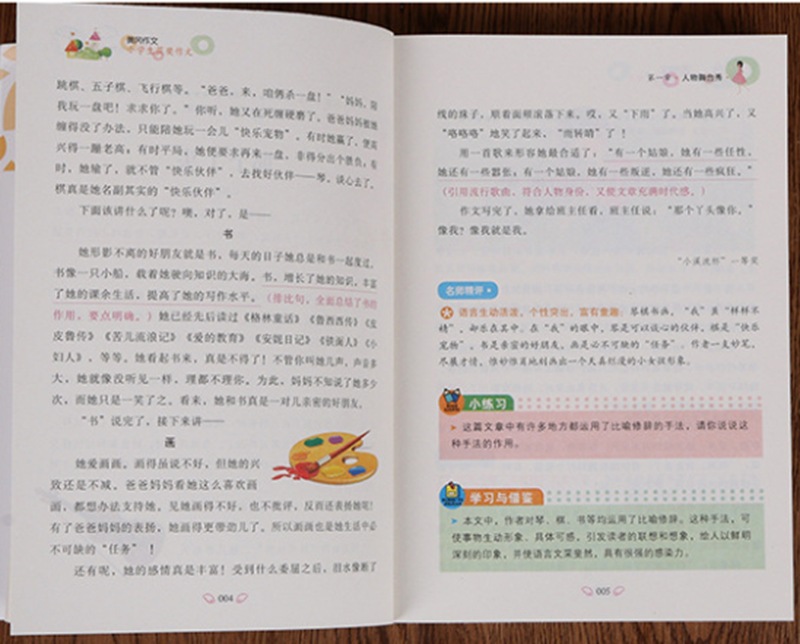 黄冈作文
小学生深度作文
跳棋、五子棋、飞行棋等。“爸爸，来，咱俩杀一盘！”“妈妈，陪
我玩一盘吧！求求你了。”你听，她又在死缠硬磨了。爸爸妈妈被她
缠得没了办法，只能陪她玩一会儿“快乐宠物”。有时她赢了，便高
兴得一蹦老高；有时平局，她便要求再来一盘，非得分出个胜负；有
时，她输了，就不管“快乐伙伴”，去找好伙伴——琴，谈心去了。
棋真是她名副其实的“快乐伙伴”。
下面该讲什么了呢？噢，对了，是——
书
她形影不离的好朋友就是书，每天的日子她总是和书一起度过。
书像一只小船，载着她驶向知识的大海。书，增长了她的知识，丰富
了她的课余生活，提高了她的写作水平。（排比句，全面总结了书的
作用，要点明确。）她已经先后读过《格林童话》《鲁西西传》《皮
皮鲁传》《苦儿流浪记》《爱的教育》《安妮日记》《铁面人》《小
妇人》，等等。她看起书来，真是不得了！不管你叫她几声，声音多
大，她就像没听见一样，理都不理你。为此，妈妈不知说了她多少
次，而她只是一笑了之。看来，她和书真是一对儿亲密的好朋友。
“书”说完了，接下来讲——
画
她爱画画。画得虽说不好，但她的兴
致还是不减。爸爸妈妈看她这么喜欢画
画，都想办法支持她。见她画得不好，也不批评，反而还表扬她呢！
有了爸爸妈妈的表扬，她画得更带劲儿了。所以画画也是她生活中必
不可缺的“任务”！
还有呢，她的感情真是丰富！受到什么委屈之后，泪水像断了
004
第一章 人物舞台秀
线的珠子，顺着面颊滚落下来。哎，又“下雨”了。当她高兴了，又
“咯咯咯”地笑了起来，“雨转晴”了！
用一首歌来形容她最合适了：“有一个姑娘，她有一些任性，
她还有一些嚣张；有一个姑娘，她有一些叛逆，她还有一些疯狂。”
（引用流行歌曲，符合人物身份，又使文章充满时代感。）
作文写完了，她拿给班主任看，班主任说：“那个丫头像你。”
像我？像我就是我。
“小溪流杯”一等奖
名师精评
语言生动活泼，个性突出，富有童趣。琴棋书画，“我”是“样样不
精”，却乐在其中。在“我”的眼中，琴是可以谈心的伙伴，棋是“快乐
宠物”，书是亲密的好朋友，画是必不可缺的“任务”。作者一支妙笔，
尽展才情，惟妙惟肖地刻画出一个天真烂漫的小女孩形象。
小练习
这篇文章中有许多地方都运用了比喻修辞的手法，请你说说这
种手法的作用。
学习与借鉴
本文中，作者对琴、棋、书等均运用了比喻修辞。这种手法，可
使事物生动形象、具体可感，引发读者的联想和想象，给人以鲜明
深刻的印象，并使语言文采斐然，具有很强的感染力。
005